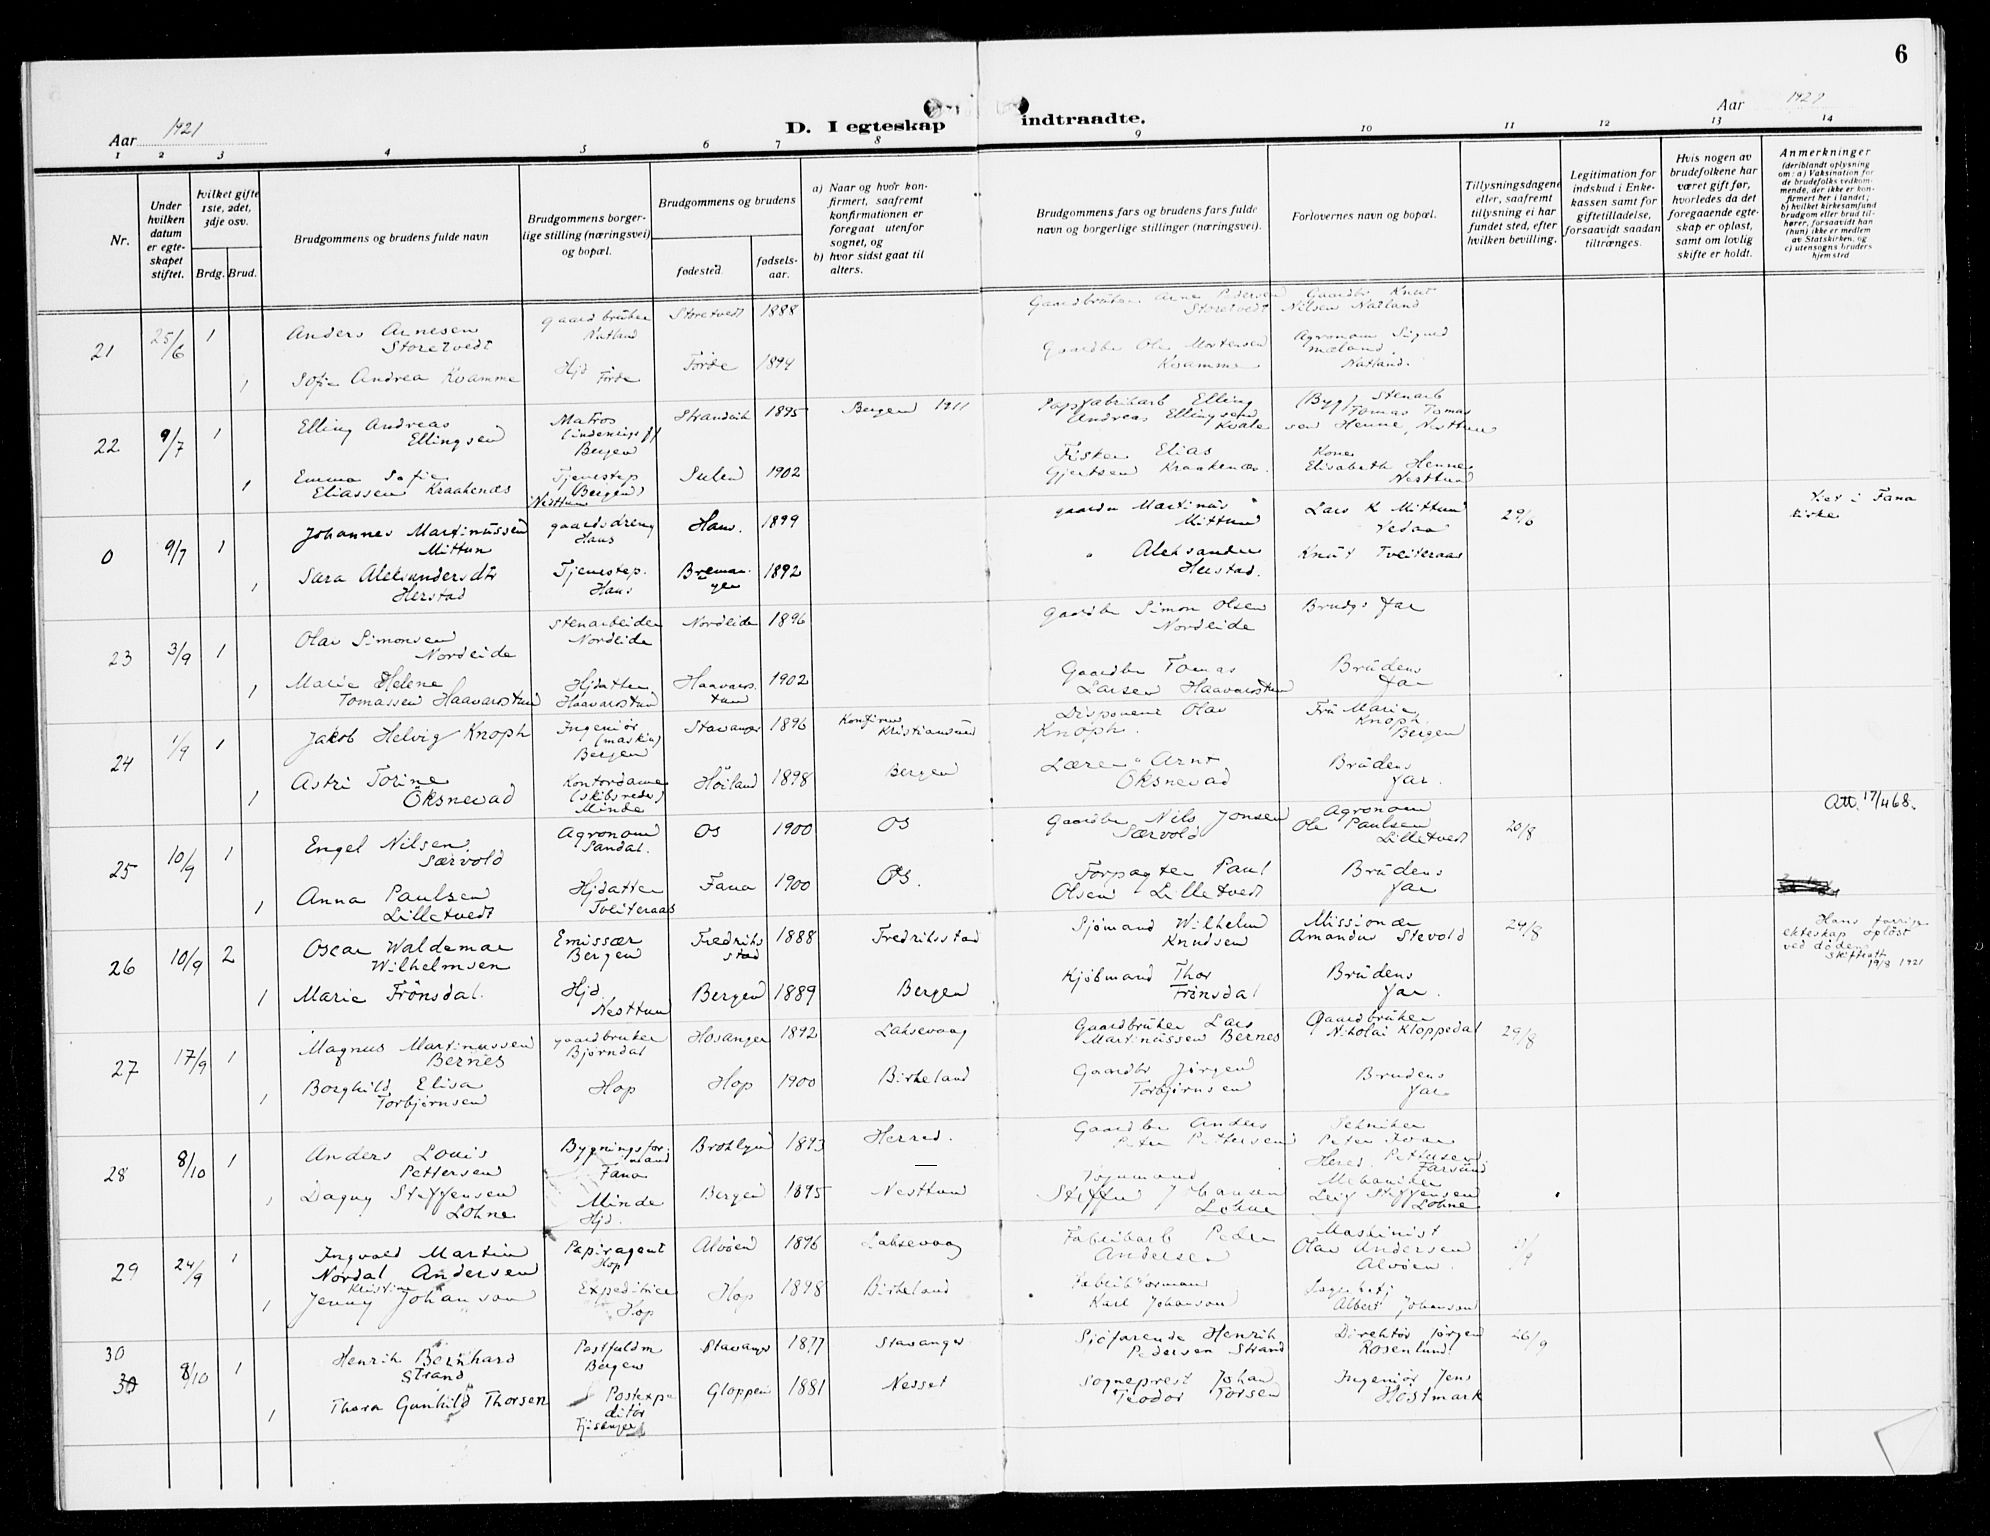 6
Aar 1921
D. I egteskap indtraadte.
Aar 1921
1 2 3 4 5 6 7 8 9 10 11 12 13 14
Nr.
Under hvilken datum er egteskapet stiftet.
hvilket gifte 1ste, 2det, 3dje osv.
Brdg. Brud.
Brudgommens og brudens fulde navn
Brudgommens borgerlige stilling (næringsvei) og bopæl.
Brudgommens og brudens
fødested.
fødselsaar.
a) Naar og hvor konfirmert, saafremt konfirmationen er foregaat utenfor sognet, og
b) hvor sidst gaat til alters.
Brudgommens fars og brudens fars fulde navn og borgerlige stillinger (næringsvei).
Forlovernes navn og bopæl.
Tillysningsdagene eller, saafremt tillysning ei har fundet sted, efter hvilken bevilling.
Legitimation for indskud i Enkekassen samt for giftetilladelse, forsaavidt saadan tiltrænges.
Hvis nogen av brudefolkene har været gift før, hvorledes da det foregaaende egteskap er opløst, samt om lovlig skifte er holdt.
Anmerkninger
(deriblandt oplysning om: a) Vaksination for de brudefolks vedkommende, der ikke er konfirmert her i landet; b) hvilket kirkesamfund brudgom eller brud tilhører, forsaavidt han (hun) ikke er medlem av Statskirken, og c) utensogns bruders hjemsted
21 25/6 1 Anders Arnesen Storetvedt gaardbruker Natland Storetvedt 1888 Gaardbruker Arne Pedersen Storetvedt Gaardbr Knut Nilsen Natland
1 Sofie Andrea Kvamme Hjd Förde Förde 1894 Gaardbr Ole Mortensen Kvamme Agronom Sigurd Mæland Natland.
22 9/7 1 Elling Andreas Ellingsen Matros Bergen Strandvik 1895 Bergen 1911 Elling Andreas Ellingsen Kvale (Byg) Stenarb Tomas Tomassen Henne, Nesttun
1 Emma Sofie Eliassen Kraakenes Tjenestep (Bergen) Nesttun Sulen 1902 Fisker Elias Gjertsen Kraakenes. Kone Elisabeth Henne Nesttun
0 9/7 1 Johannes Martinussen Mittun gaardsdreng Haus Haus. 1899 gaardbr Martinus Mittun Lars K Mittun Vedaa 29/6 Viet i Fana kirke
1 Sara Aleksandersdtr Herstad Tjenestep. Haus Bremangen 1892 " Aleksander Herstad. Knut Tveiteraas
23 3/9 1 Olav Simonsen Nordeide Stenarbeider Nordeide Nordeide 1896 Gaardbr Simon Olsen Nordeide Brudgs far
1 Marie Helene Tomassen Haavarstun Hjdatter Haavarstun Haavarstun 1902 Gaardbr Tomas Larsen Haavarstun Brudens far
24 1/9 1 Jakob Helvig Knoph Ingeniør (maskin) Bergen Stavanger 1896 Konfirm Kristiansund Disponent Olav Knoph. Fru Marie Knoph. Bergen
1 Astri Torine Öksnevad Kontordame (skibsreder) Minde Höiland 1898 Bergen Lærer Arnt Öksnevad Brudens far.
25 10/9 1 Engel Nilsen Særvold Agronom Sandal. Os 1900 Os Gaardbr Nils Jonsen Særvold Agronom Ole Paulsen Lilletvedt 20/8 Att. 17/4 68.
1 Anna Paulsen Lilletvedt Hjdatter Tveiteraas Fana 1900 Os. Forpagter Paul Olsen Lilletvedt Brudens far
26 10/9 2 Oscar Waldemar Wilhelmsen Emissær Bergen Fredriksstad 1888 Fredriksstad Sjømand Wilhelm Knudsen Missionær Amandus Stevold 24/8 Hans forrige ekteskap opløst ved døden Skifteatt 19/8 1921
1 Marie Frönsdal. Hjd. Nesttun Bergen 1889 Bergen Kjöbmand Thor Frönsdal Brudens far.
27 17/9 1 Magnus Martinussen Bernes gaardbruker Bjørndal Hosanger 1892 Laksevaag Gaardbruker Lars Martinussen Bernes Gaardbruker Nikolai Kloppedal 29/8
1 Borghild Elisa Torbjörnsen Hop Hop 1900 Birkeland Gaardbr Jörgen Torbjörnsen Brudens far
28 8/10 1 Anders Louis Pettersen Bygningsformand Fana Broklyn 1893 Herred. Gaardbr Anders Peter Pettersen Tekniker Peter Ivar Pettersen Farsund
1 Dagny Steffensen Lohne Minde Hjd. Bergen 1895 Nesttun Steffen Johansen Lohne Mekaniker Leif Steffensen Lohne
29 24/9 1 Ingvald Martin Nordal Andersen Papiragent Hop Alvöen 1896 Laksevaag Fabrikarb Peder Andersen Maskinist Olav Andersen Alvöen
1 Jenny Kristine Johanson Expeditrice Hop Hop 1898 Birkeland Fabrikformand Karl Johanson Albert Johanson
30 8/10 1 Henrik Bernhard Strand Postfuldm Bergen Stavanger 1877 Stavanger Sjöfarende Henrik Pedersen Strand Direktör Jörgen Rosenlund 26/9
30 1 Thora Gunhild Thorsen Postexpeditör Gloppen 1881 Nesset Sogneprest Johan Teodor Torsen Ingeniör Jens Hostmark